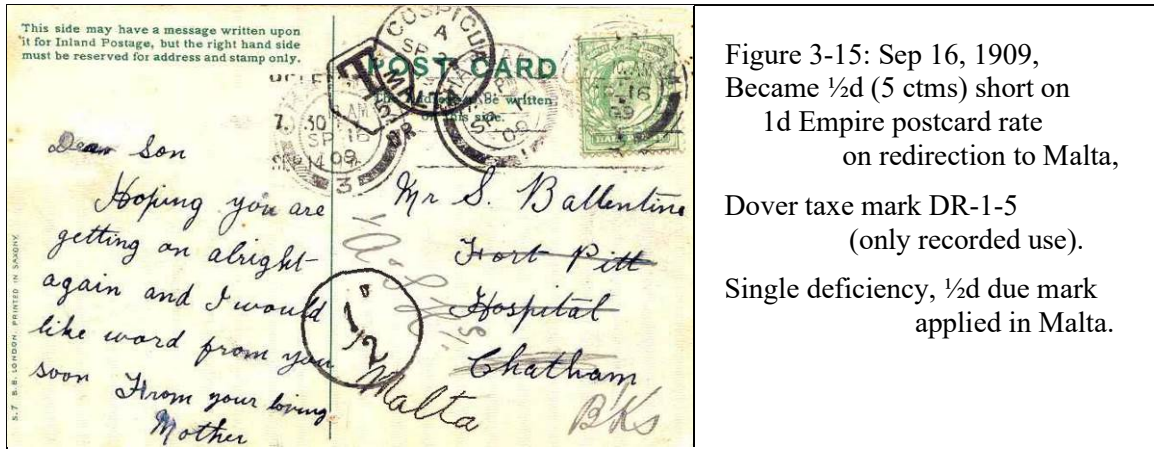 This side may have a message written upon
it for Inland Postage, but the right hand side
must be reserved for address and stamp only.
POST CARD
The Address to be written
on this side.
COSPICUA
A
SP
MALTA
T
7. 30 AM
SP 16
09
3
SP 16
09
Dear Son
Hoping you are
getting on alright
again and I would
like word from you
soon From your loving
Mother
Mr S. Ballentine
Fort Pitt
Hospital
Chatham
Malta
B'Ks
1/2
S. 7. B.B. LONDON. PRINTED IN SAXONY.
Figure 3-15: Sep 16, 1909,
Became ½d (5 ctms) short on
1d Empire postcard rate
on redirection to Malta,
Dover taxe mark DR-1-5
(only recorded use).
Single deficiency, ½d due mark
applied in Malta.